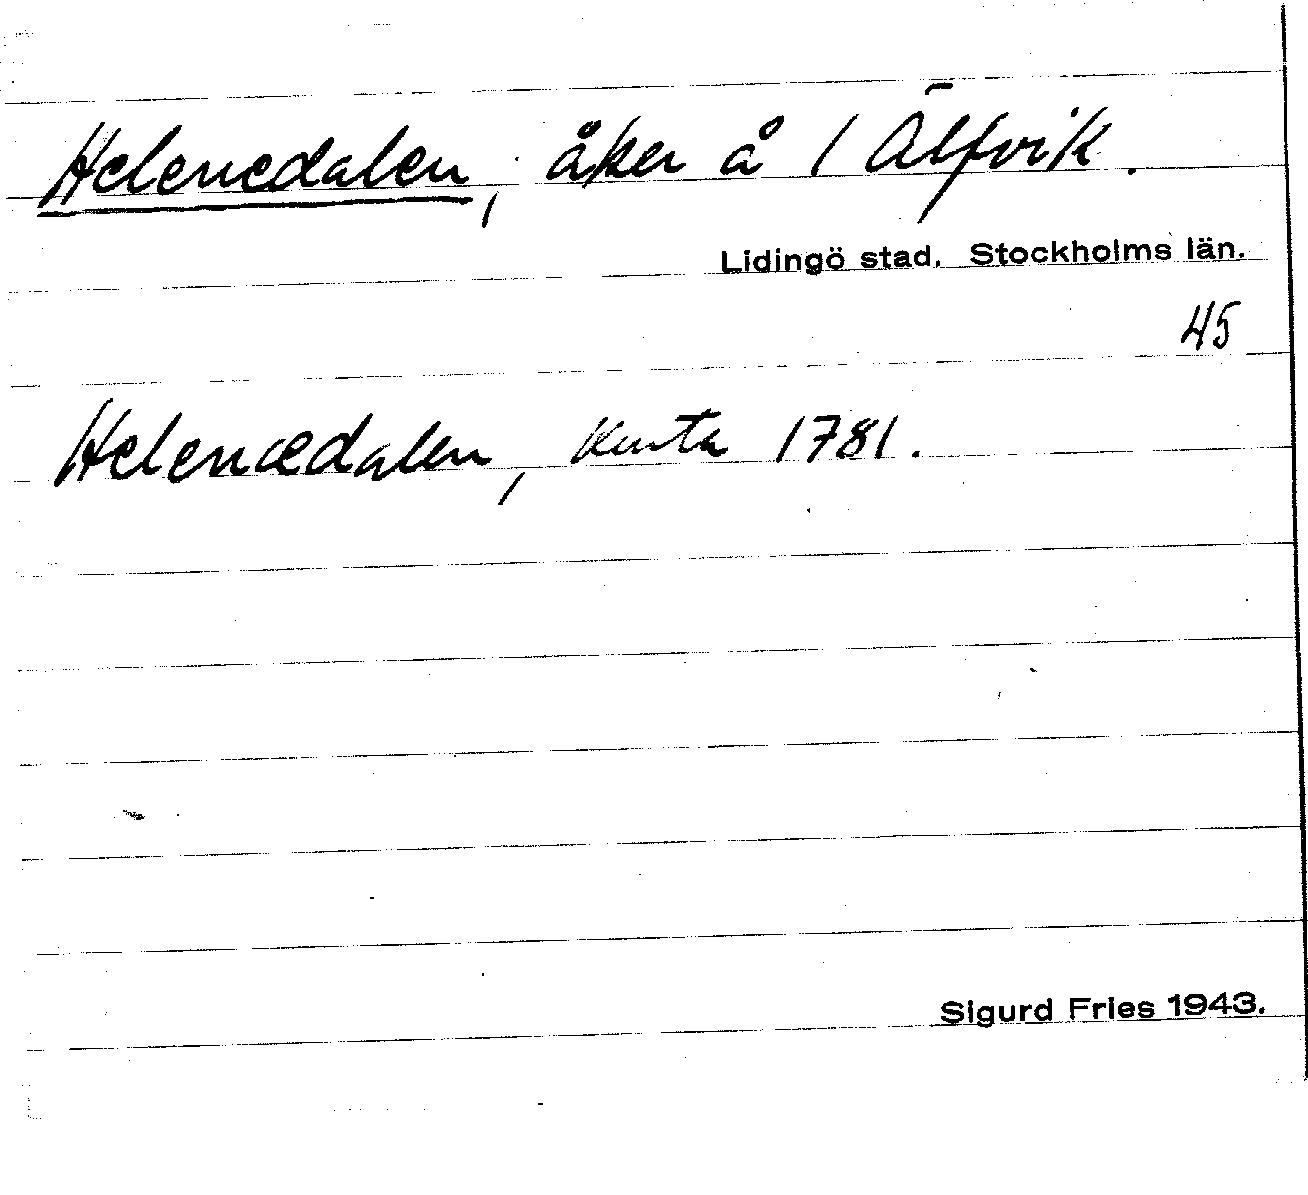 Helenedalen, åker å 1 Älfvik.
Lidingö stad. Stockholms län.
45
Helenædalen, Karta 1781.
Sigurd Fries 1943.